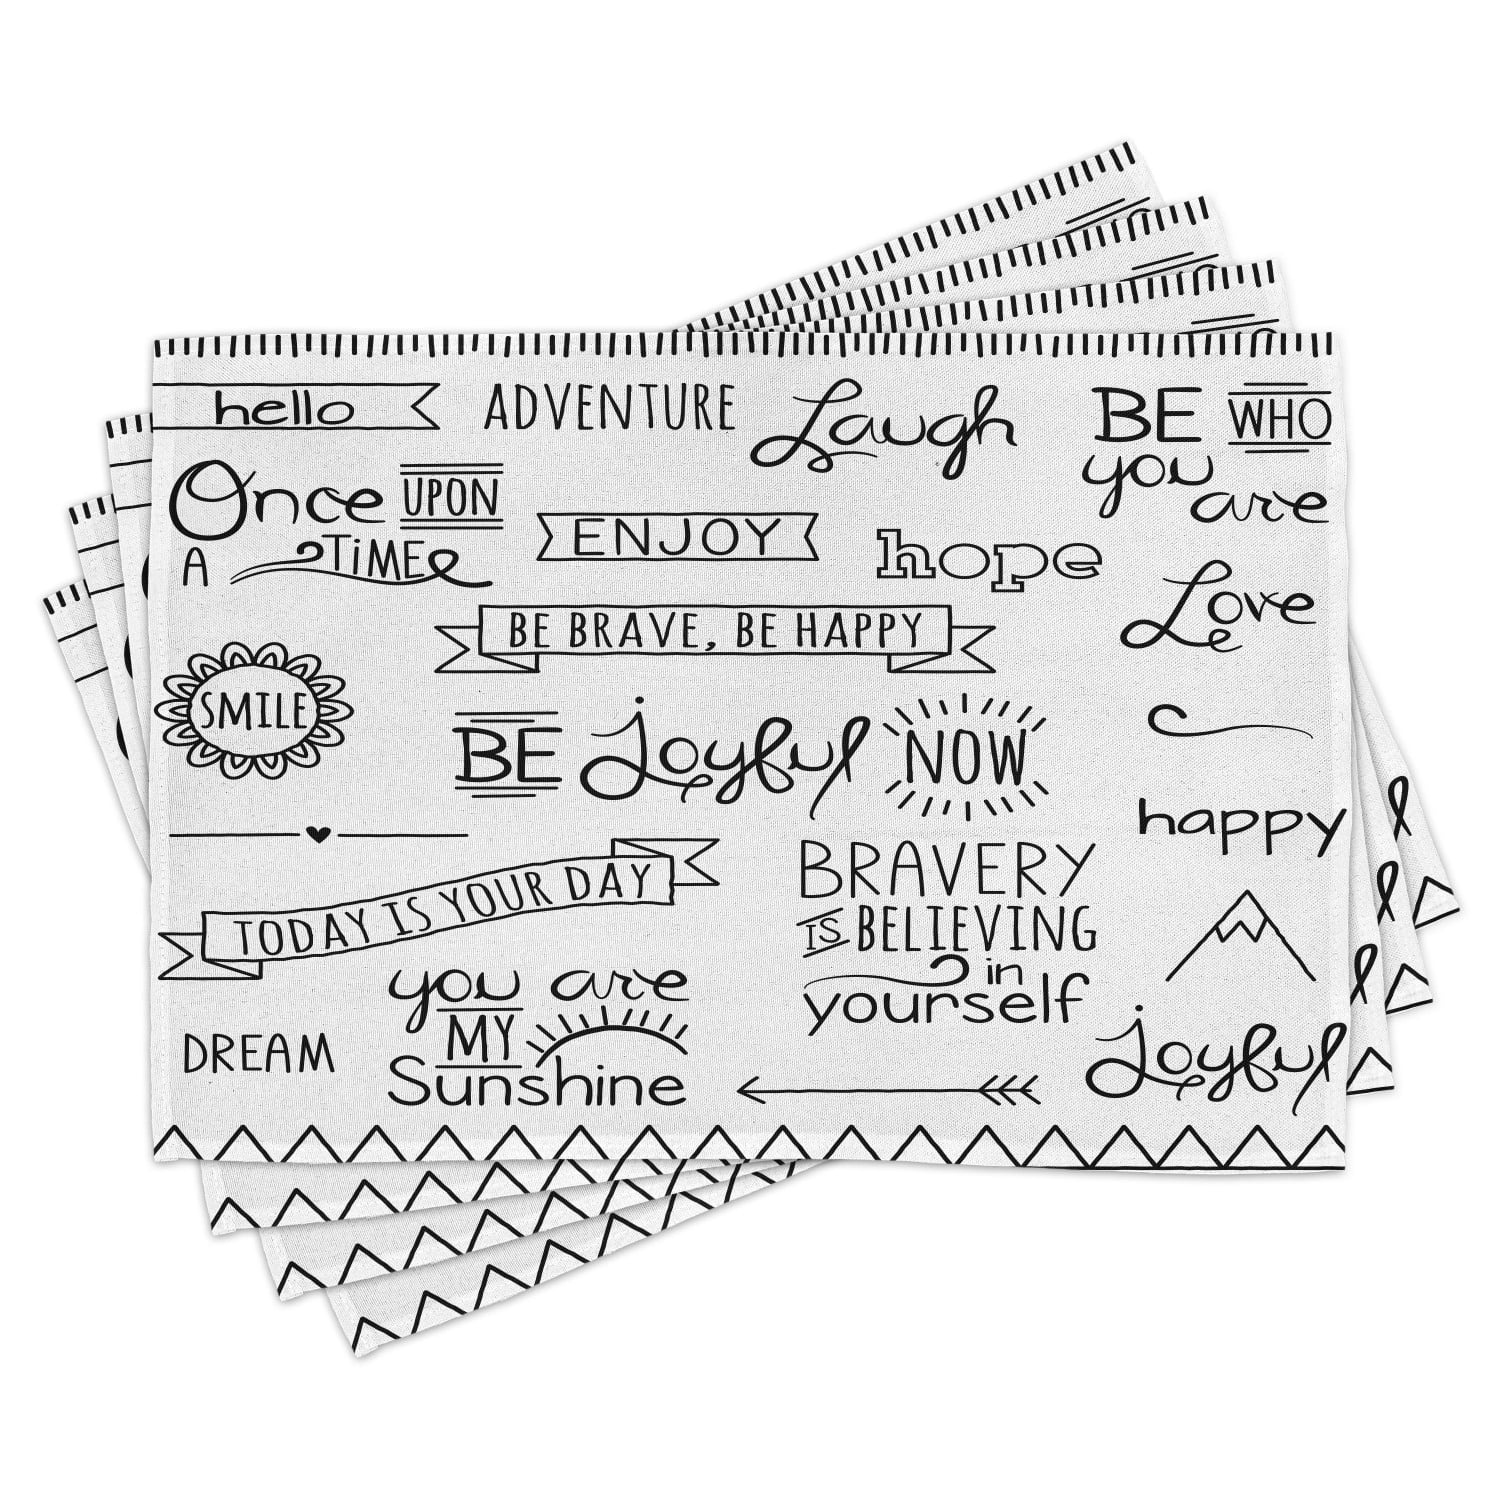 hello
ADVENTURE
Laugh
BE WHO
you
are
Once UPON
A TiME
ENJOY
hope
Love
BE BRAVE, BE HAPPY
SMILE
BE Joyful NOW
happy
TODAY IS YOUR DAY
BRAVERY
IS BELIEVING
in
yourself
you are
MY
Sunshine
DREAM
Joyful